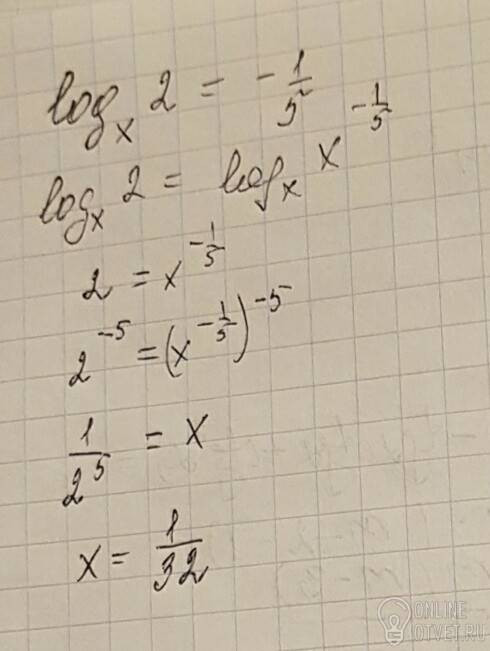 logₓ 2 = -1/5
logₓ 2 = logₓ x^(-1/5)
2 = x^(-1/5)
2^(-5) = (x^(-1/5))^(-5)
1/2^5 = x
x = 1/32
ONLINE
OTVET.RU